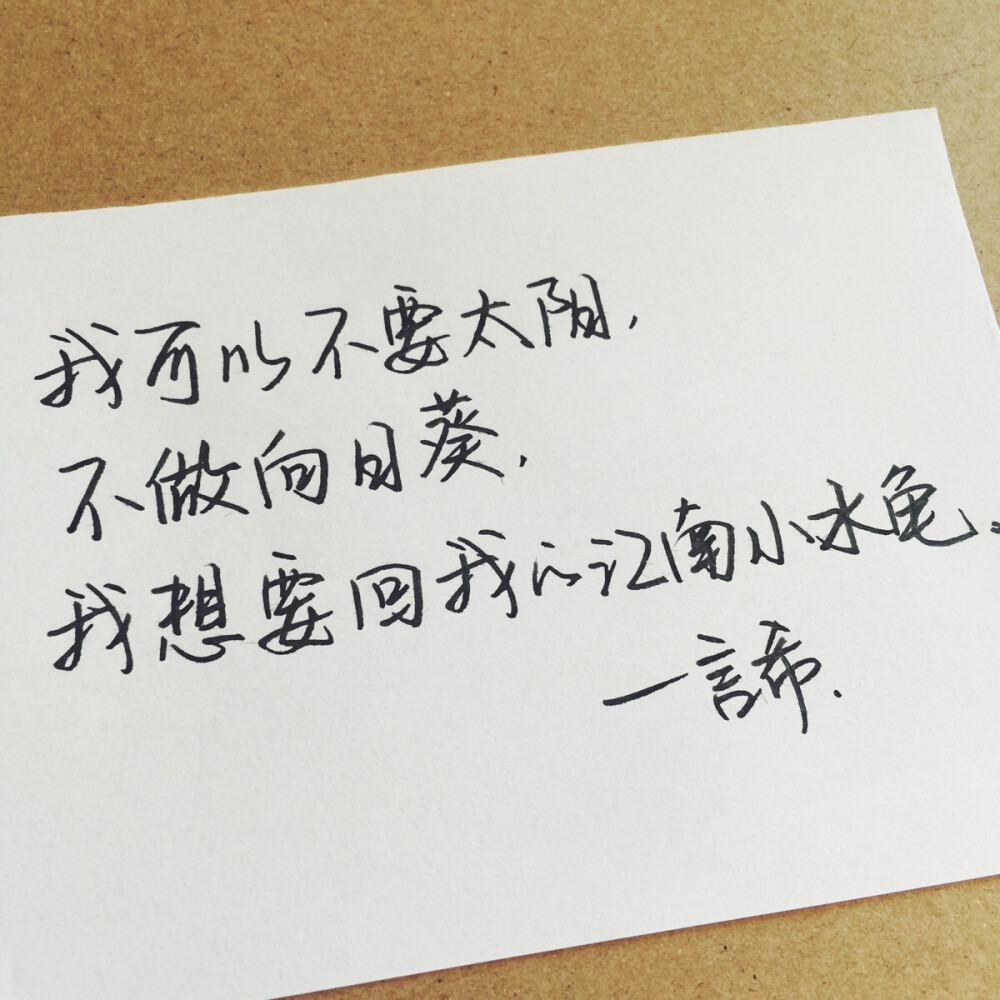 我可以不要太阳,
不做向日葵,
我想要回我的江南小水龟。
一諦.